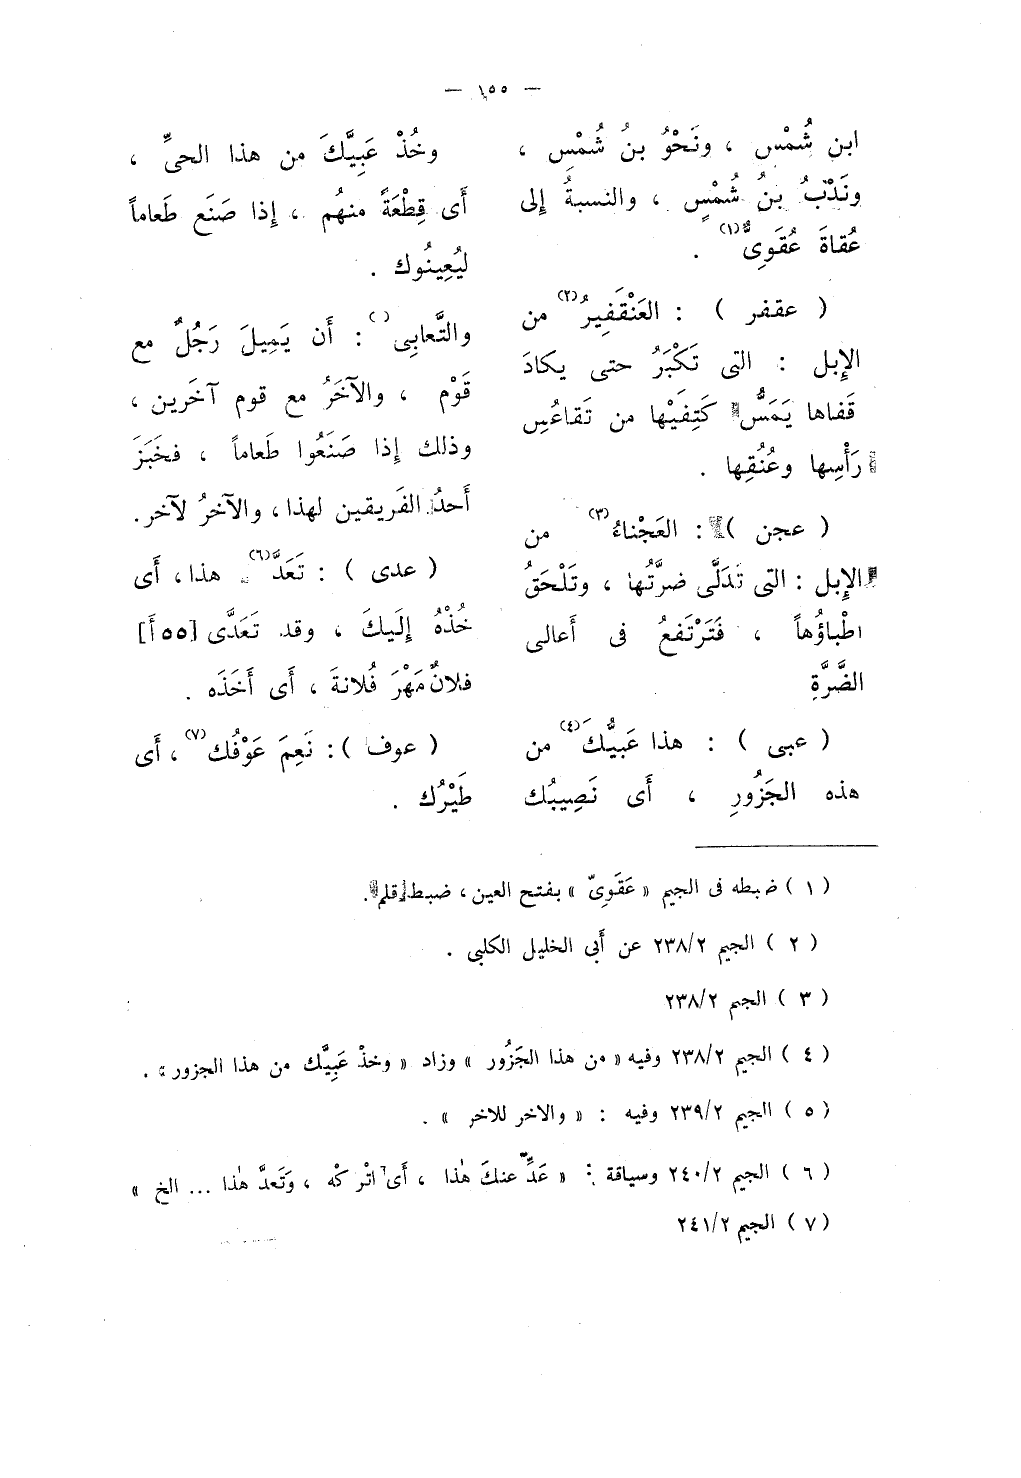 — ١٥٥ —
ابن شُمْسٍ ، ونَحْوُ بنُ شُمْسٍ ،
ونَدْبُ بنُ شُمْسٍ ، والنسبةُ إلى
عُقاةَ عُقَوِىٌّ(١) .
( عقفر ) : العَنْقَفِيرُ(٢) من
الإِبل : التى تَكْبَرُ حتى يكادَ
قَفاها يَمَسُّ كَتِفَيْها من تَقاعُسِ
رَأْسِها وعُنُقِها .
( عجن ) : العَجْناءُ(٣) من
الإِبل : التى تَدَلَّى ضرَّتُها ، وتَلْحَقُ
اطْباؤُهاً ، فَتَرْتَفعُ فى أَعالى
الضَّرَّةِ
( عبى ) : هذا عَبِيُّكَ(٤) من
هذه الجَزُورِ ، أَى نَصِيبُك
وخُذْ عَبِيَّكَ من هذا الحىِّ ،
أَى قِطْعَةً منهُم ، إِذا صَنَع طَعاماً
ليُعِينُوك .
والتَّعابِى( ) : أَن يَمِيلَ رَجُلٌ مع
قَوْم ، والآخَرُ مع قوم آخَرين ،
وذلك إِذا صَنَعُوا طَعاماً ، فخَبَزَ
أَحدُ الفَريقين لهذا ، والآخرُ لآخر.
( عدى ) : تَعَدَّ(٦) هذا ، أَى
خُذْهُ إِلَيكَ ، وقد تَعَدَّى [٥٥ أ]
فلانٌ مَهْرَ فُلانةَ ، أَى أَخَذَه .
( عوف ) : نَعِمَ عَوْفُك(٧) ، أَى
طَيْرُك .
( ١ ) ضبطه فى الجيم « عَقَوِىّ » بفتح العين ، ضبط قلم .
( ٢ ) الجيم ٢٣٨/٢ عن أَبى الخليل الكلبى .
( ٣ ) الجيم ٢٣٨/٢
( ٤ ) الجيم ٢٣٨/٢ وفيه « من هذا الجَزُور » وزاد « وخذْ عَبِيَّك من هذا الجزور » .
( ٥ ) الجيم ٢٣٩/٢ وفيه : « والاخر للاخر » .
( ٦ ) الجيم ٢٤٠/٢ وسياقة : « عَدِّ عنكَ هٰذا ، أَى اتْركْه ، وَتَعدَّ هٰذا ... الخ »
( ٧ ) الجيم ٢٤١/٢